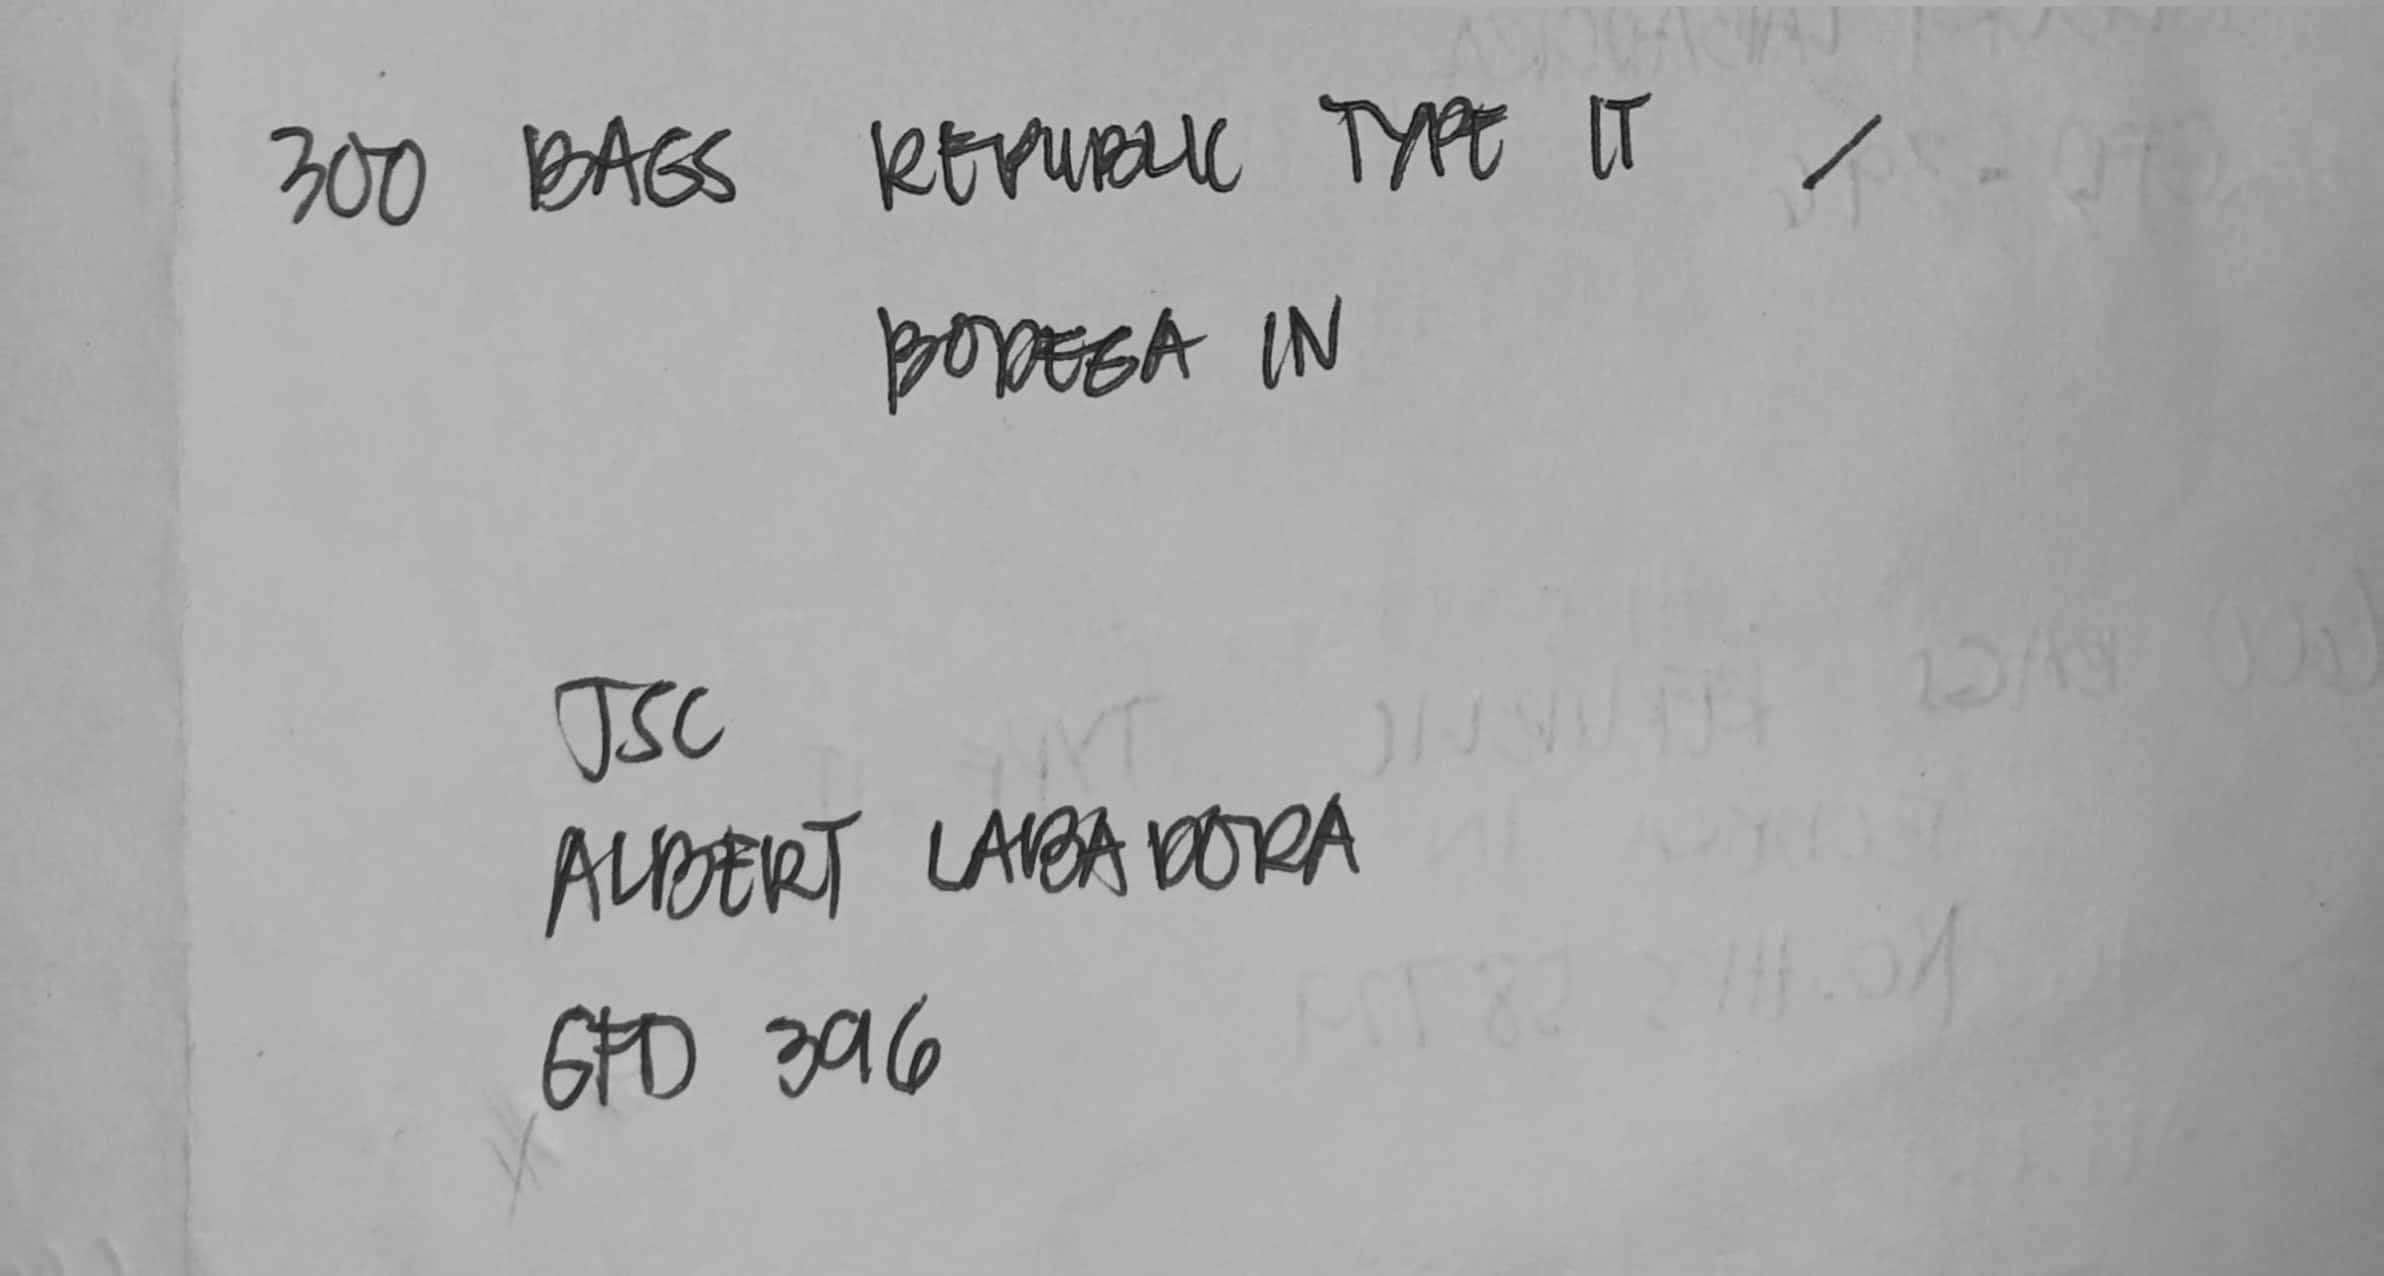 300 BAGS REPUBLIC TYPE IT /
BODEGA IN
JSC
ALBERT LABADORA
GFD 396